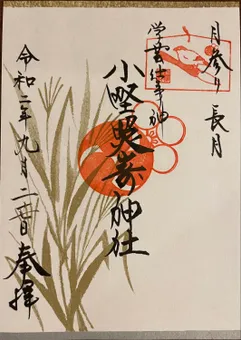 月参り 長月
学芸仕事神
小野照崎神社
令和二年九月二十日
奉拝